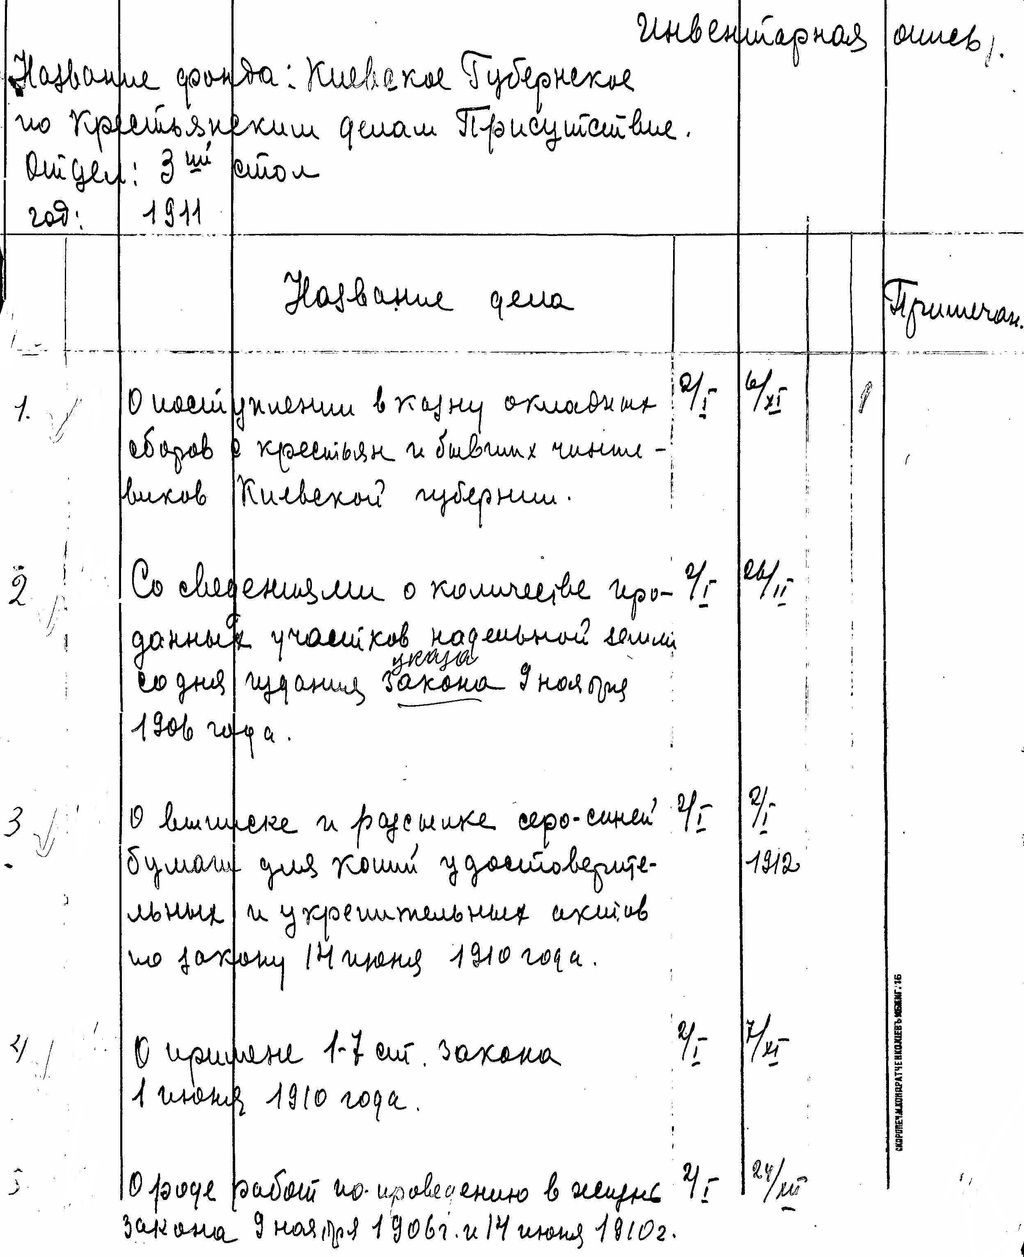 Инвентарная опись.
Название фонда: Киевское Губернское
по крестьянским делам Присутствие.
Отдел: 3ий стол
год: 1911
Название дела
Примечан.
1. О поступлении в казну окладных 2/I 6/XI
сборов с крестьян и бывших чинше-
виков Киевской губернии.
2 Со сведениями о количестве про- 2/I 26/II
данных участков надельной земли
указа
со дня издания закона 9 ноября
1906 года.
3 О выписке и рассылке серо-синей 2/I 2/I
бумаги для копий удостоверите- 1912
льных и укрепительных актов
по закону 14 июня 1910 года.
4 О примене 1-7 ст. закона 2/I 7/XI
1 июня 1910 года.
5 О роде работ по проведению в жизнь 2/I 24/XII
закона 9 ноября 1906г. и 14 июня 1910г.